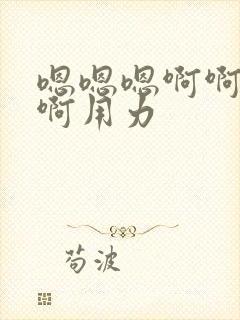 嗯嗯嗯啊啊
啊用力
苟波